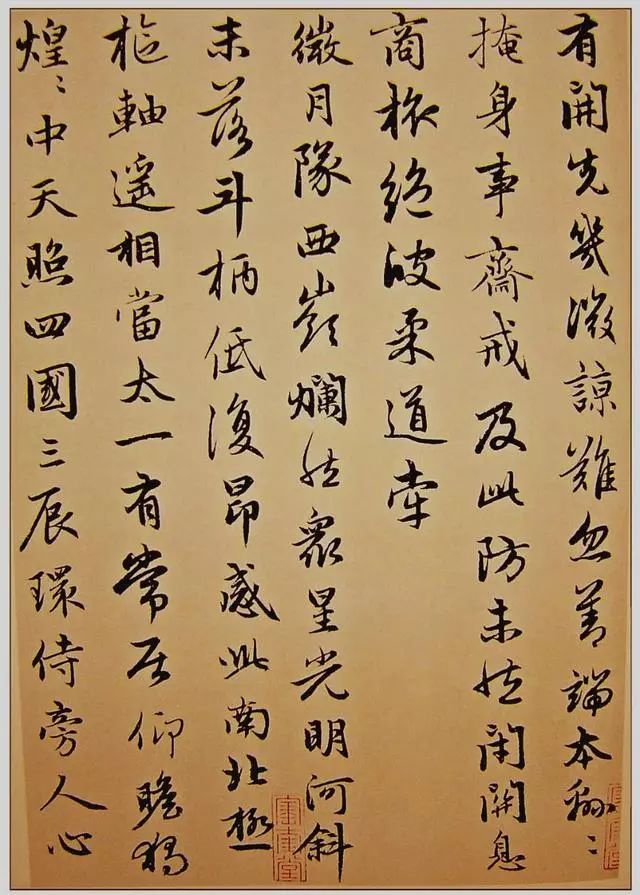 有開先幾微諒難忽善端本綿〻
掩身事齋戒及此防未然閉關息
商旅絕彼柔道牽
微月隊西嶺爛然眾星光明河斜
未落斗柄低復昂感此南北極
樞軸遥相當太一有常居仰瞻獨
煌〻中天照四國三辰環侍旁人心